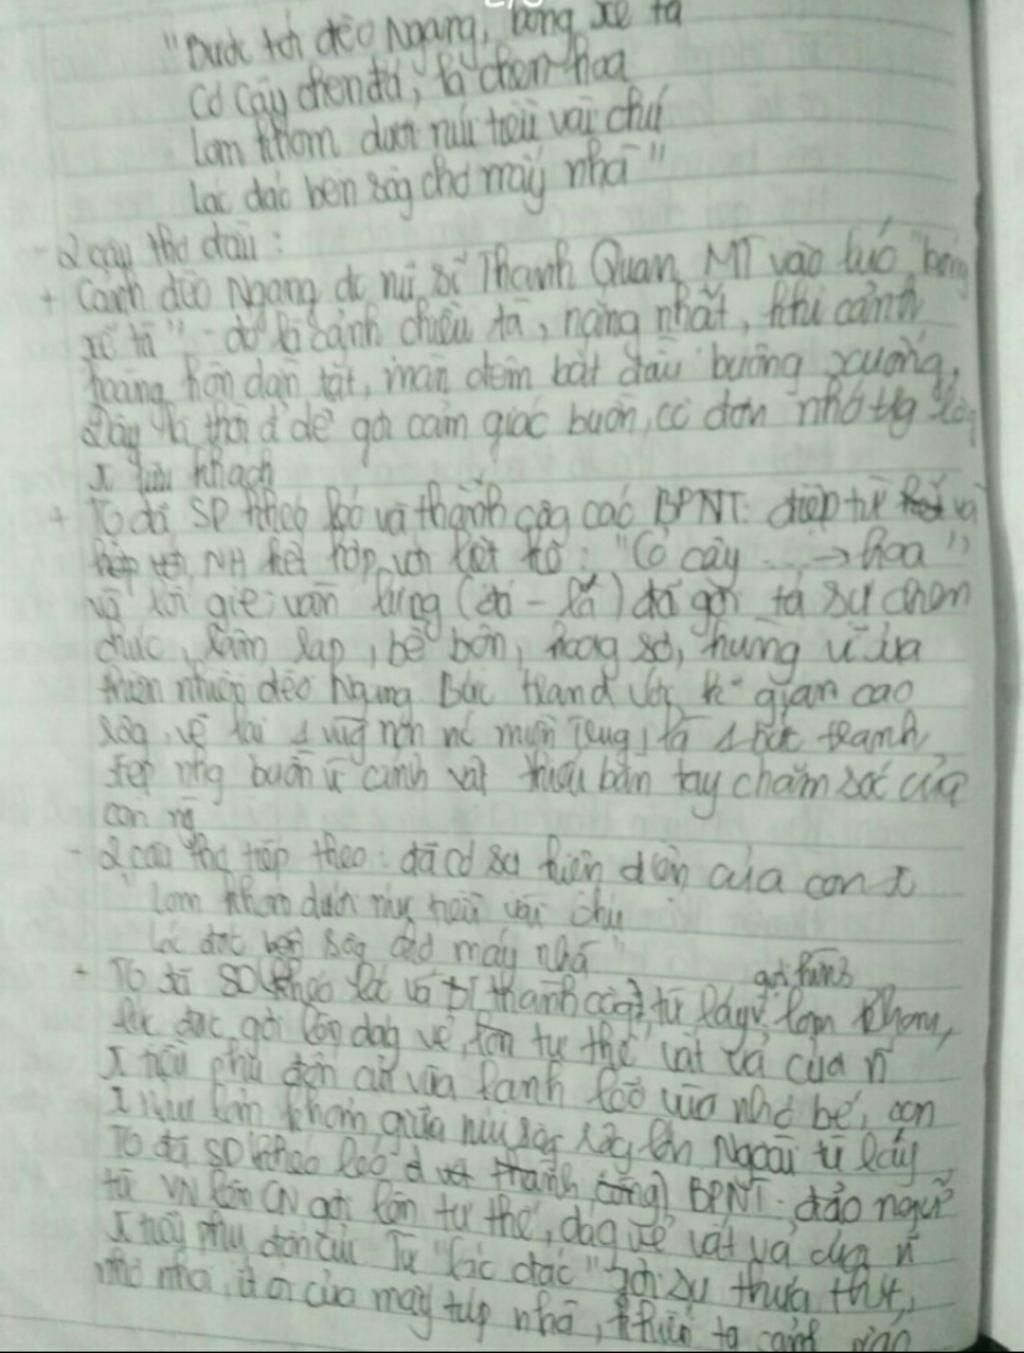 "Bước tới đèo Ngang, bóng xế tà
Cỏ cây chen đá, lá chen hoa
Lom khom dưới núi tiều vài chú
Lác đác bên sôg chợ mấy nhà"
- 2 câu thơ đầu:
+ Cảnh đèo Ngang đc nữ sĩ Thanh Quan MT vào lúc "bóng
xế tà" - đó là cảnh chiều tà, nắng nhạt, khi cảnh
hoàng hôn dần tắt, màn đêm bắt đầu buông xuống,
Đây là thời đ dễ gợi cảm giác buồn, cô đơn nhớ tg lòg
lữ khách
+ TG đã SD khéo léo và thành côg các BPNT: điệp từ
NH kết hợp với liệt kê: "Cỏ cây ... → hoa"
và lối gieo vần lưng (đá - lá) đã gợi tả sự chen
chúc, rậm rạp, bề bộn, hoag sơ, hùng vĩ của
thiên nhiên đèo Ngang. Bức tranh với k° gian cao
rôg, vẽ lại 1 vùg non nc mênh môg, là 1 bức tranh
đẹp nhg buồn vì cảnh vật thiếu bàn tay chăm sóc của
con ng
- 2 câu thơ tiếp theo: đã có sự hiện diện của con
"Lom khom dưới núi, tiều vài chú
Lác đác bên sôg chợ mấy nhà"
gợi hình
+ TG đã SD khéo léo và thành côg từ láy lom khom,
lác đác gợi lên dág vẻ, tư thế vất vả của
tiều phu đốn củi vừa lanh lợi vừa nhỏ bé, con
như lom khom giữa núi rừg rộg lớn Ngoài từ láy
TG đã SD khéo léo BPNT: đảo ngữ
từ VN lên CN gợi lên tư thế, dág vẻ vất vả của
tiều phu đốn củi. Từ "lác đác" gợi sự thưa thớt,
nhỏ nhoi, ít ỏi của mấy túp nhà, khiến ta cảnh